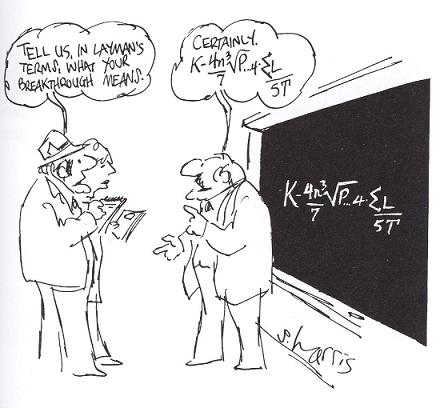 TELL US, IN LAYMAN'S
TERMS, WHAT YOUR
BREAKTHROUGH MEANS.
CERTAINLY.
K-4n³√P...4·ΣL
7 5T
K-4n³√P...4·ΣL
7 5T
S. Harris